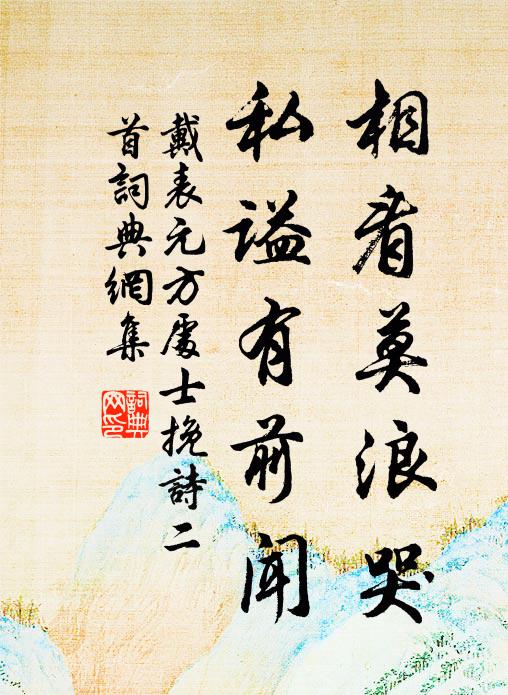 相看莫浪哭
私谥有前闻
戴表元方处士挽詩二
首詞典網集
詞典
网印